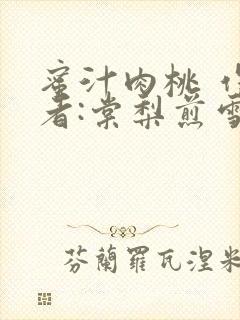 蜜汁肉桃 作
者:棠梨煎雪
芬蘭羅瓦涅米